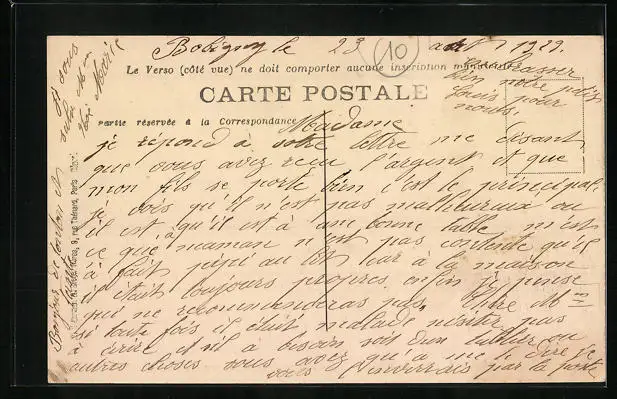 Bobigny le 23 août 1929.
Le Verso (côté vue) ne doit comporter aucune inscription manuscrite
CARTE POSTALE
Partie réservée à la Correspondance
Embrasser
bien notre petit
Louis pour
nous.
Madame
je répond a votre lettre me disant
que vous avez recu l'argent et que
mon fils se porte bien c'est le principal.
je vois qu'il n'est pas malheureux ou
il est qu'il est à une bonne table, m'est
ce que maman n'est pas contente qu'il
à fait pipi au lit car à la maison
il était toujours propres enfin je pense
qui ne recommenderas pas, Chère Mme
si toute fois il était malade n'ésitez pas
à écrire et s'il a besoin soit d'un tablier ou
autres choses vous avez qu'a me le dire je
vous l'enverrais par la poste
Bonjour de tonton et
tante
et vous
salue Mme
Marie